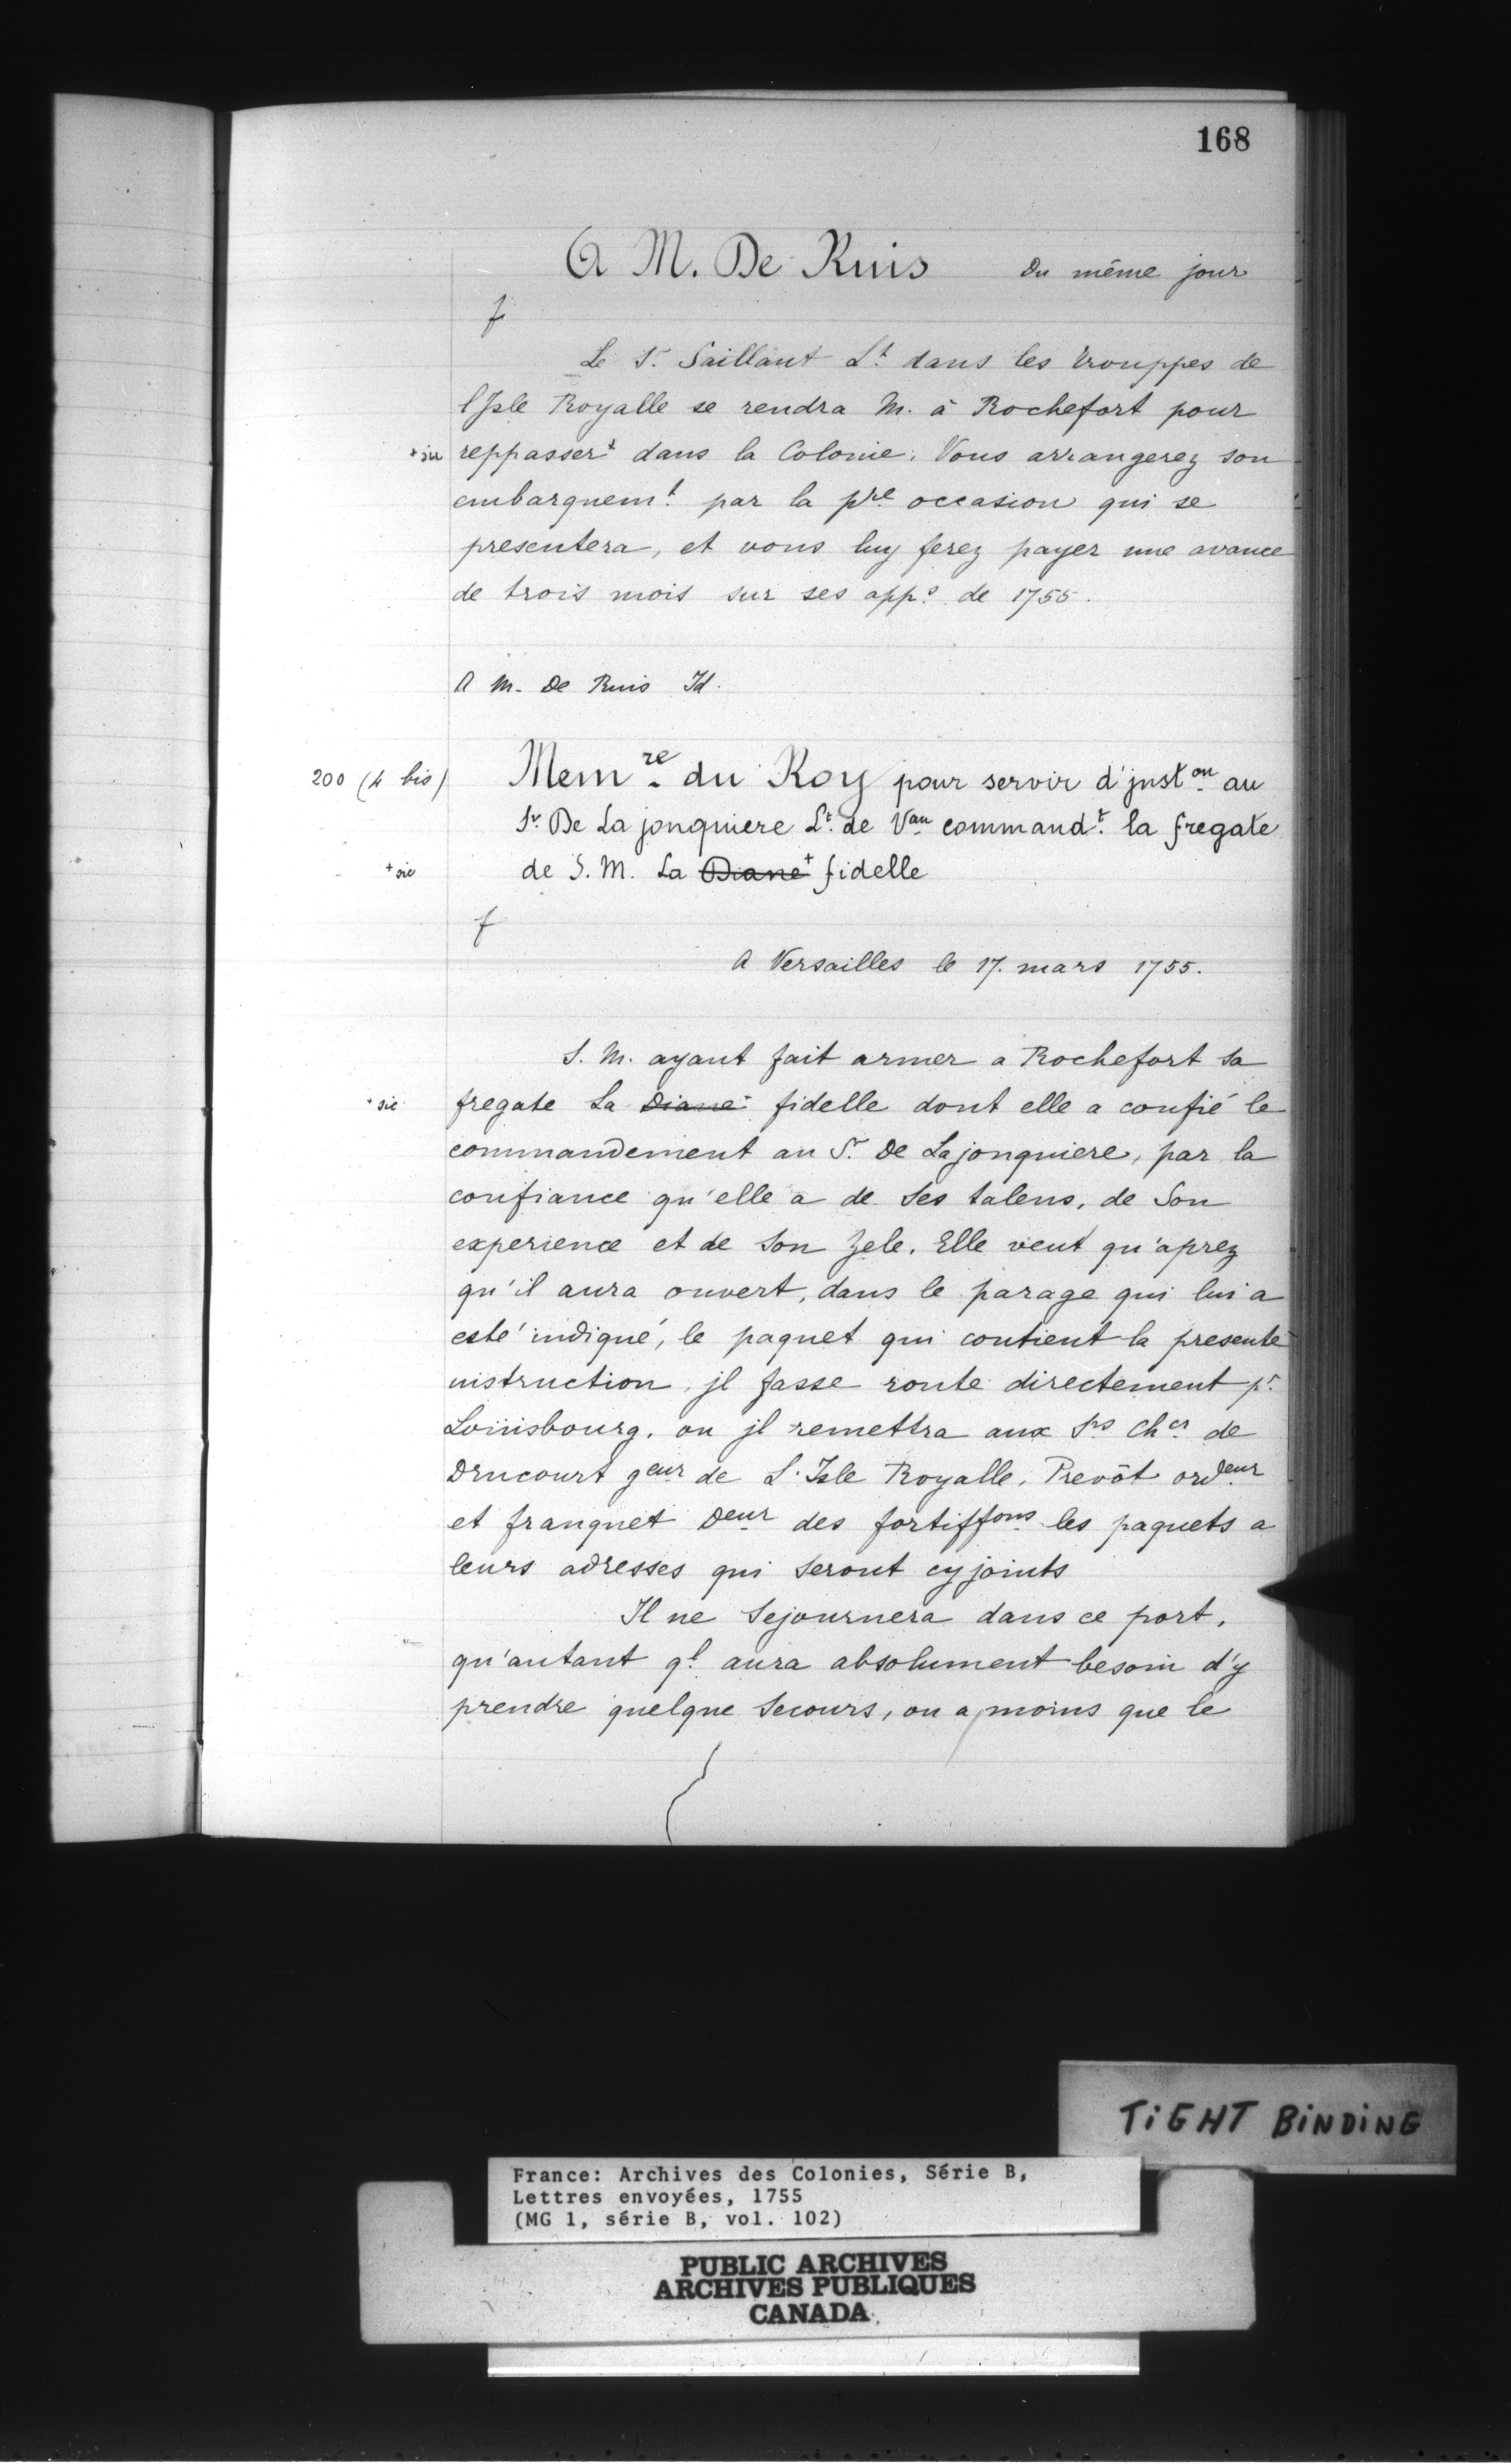 168
A M. De Ruis du même jour
f
Le Sr. Saillant Lt. dans les trouppes de
l'Jsle Royalle se rendra M. à Rochefort pour
+sic reppasser+ dans la Colonie. Vous arrangerez son
embarquemt. par la pre. occasion qui se
presentera, et vous luy ferez payer une avance
de trois mois sur ses apps. de 1755.
A M. De Ruis Id.
200 (4 bis) Memre. du Roy pour servir d'juston. au
Sr. De La jonquiere Lt. de Vau command.t la fregate
+sic de S. M. La Diane+ fidelle
f
A Versailles le 17. mars 1755.
S. M. ayant fait armer a Rochefort sa
+sic fregate La Diane+ fidelle dont elle a confié le
commandement au Sr. De Lajonquiere, par la
confiance qu'elle a de ses talens, de Son
experience et de son Zele. Elle veut qu'aprez
qu'il aura ouvert, dans le parage qui lui a
esté indiqué, le paquet qui contient la presente
instruction, jl fasse route directement pr.
Loüisbourg, ou jl remettra aux Srs Cher. de
Drucourt geur de L'Isle Royalle, Prevôt ordeur
et franquet Deur des fortiffons les paquets a
leurs adresses qui seront cy joints
Il ne Sejournera dans ce port,
qu'autant ql. aura absolument besoin d'y
prendre quelque secours, ou a moins que le
TiGHT BiNDiNG
France: Archives des Colonies, Série B,
Lettres envoyées, 1755
(MG 1, série B, vol. 102)
PUBLIC ARCHIVES
ARCHIVES PUBLIQUES
CANADA